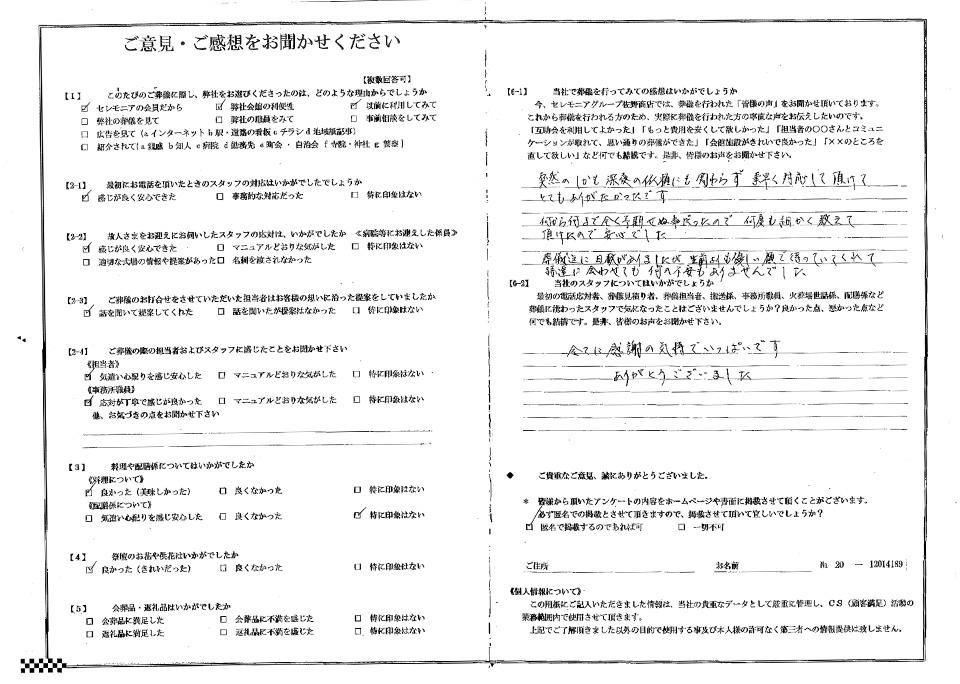 ご意見・ご感想をお聞かせください
【複数回答可】
【1】 このたびのご葬儀に際し、弊社をお選びくださったのは、どのような理由からでしょうか
☑ セレモニアの会員だから ☑ 弊社会館の利便性 ☑ 以前に利用してみて
□ 弊社の葬儀を見て □ 弊社の組織をみて □ 事前相談をしてみて
□ 広告を見て（a インターネット b 駅・道路の看板 c チラシ d 地域限記事）
□ 紹介されて( a 親戚 b 知人 c 病院 d 勤務先 e 町会・自治会 f 寺院・神社 g 警察 )
【2-1】 最初にお電話を頂いたときのスタッフの対応はいかがでしたでしょうか
☑ 感じが良く安心できた □ 事務的な対応だった □ 特に印象はない
【2-2】 故人さまをお迎えにお伺いしたスタッフの応対は、いかがでしたか 《病院等にお迎えした係員》
☑ 感じが良く安心できた □ マニュアルどおりな気がした □ 特に印象はない
□ 適切な式場の情報や提案があった □ 名刺を渡されなかった
【2-3】 ご葬儀のお打合せをさせていただいた担当者はお客様の想いに沿った提案をしていましたか
☑ 話を聞いて提案してくれた □ 話を聞いたが提案はなかった □ 特に印象はない
【2-4】 ご葬儀の際の担当者およびスタッフに感じたことをお聞かせ下さい
《担当者》
☑ 気遣い心配りを感じ安心した □ マニュアルどおりな気がした □ 特に印象はない
《事務所職員》
☑ 応対が丁寧で感じが良かった □ マニュアルどおりな気がした □ 特に印象はない
他、お気づきの点をお聞かせ下さい
【3】 料理や配膳係についてはいかがでしたか
《料理について》
☑ 良かった（美味しかった） □ 良くなかった □ 特に印象はない
《配膳係について》
□ 気遣い心配りを感じ安心した □ 良くなかった ☑ 特に印象はない
【4】 祭壇のお花や供花はいかがでしたか
☑ 良かった（きれいだった） □ 良くなかった □ 特に印象はない
【5】 会葬品・返礼品はいかがでしたか
□ 会葬品に満足した □ 会葬品に不満を感じた □ 特に印象はない
□ 返礼品に満足した □ 返礼品に不満を感じた □ 特に印象はない
【6-1】 当社で葬儀を行ってみての感想はいかがでしょうか
今、セレモニアグループ佐野商店では、葬儀を行われた「皆様の声」をお聞かせ頂いております。
これから葬儀を行われる方のため、実際に葬儀を行われた方の率直な声をお伝えしたいのです。
「互助会を利用してよかった」「もっと費用を安くして欲しかった」「担当者の○○さんとコミュニ
ケーションが取れて、思い通りの葬儀ができた」「会館施設がきれいで良かった」「××のところを
直して欲しい」など何でも結構です。是非、皆様のお声をお聞かせ下さい。
突然の しかも 深夜の依頼にも関わらず 素早く対応して頂けて
とてもありがたかったです
何から何まで全く予期せぬ事だったので 何度も細かく教えて
頂けたので安心でした
葬儀迄に日数がありましたが 生前よりも優しい顔で待っていてくれて
特達に会わせても 何の不安もありませんでした
【6-2】 当社のスタッフについてはいかがでしょうか
最初の電話応対者、葬儀見積り者、葬儀担当者、搬送係、事務所職員、火葬場世話係、配膳係など
葬儀に携わったスタッフで気になったことはございませんでしょうか？良かった点、悪かった点など
何でも結構です。是非、皆様のお声をお聞かせ下さい。
全てに感謝の気持でいっぱいです
ありがとうございました
◆ ご貴重なご意見、誠にありがとうございました。
* 皆様から頂いたアンケートの内容をホームページや書面に掲載させて頂くことがございます。
必ず匿名での掲載とさせて頂きますので、掲載させて頂いて宜しいでしょうか？
☑ 匿名で掲載するのであれば可 □ 一切不可
ご住所 お名前 № 20 － 12014189
《個人情報について》
この用紙にご記入いただきました情報は、当社の貴重なデータとして厳重に管理し、CS（顧客満足）活動の
業務範囲内で使用させて頂きます。
上記でご了解頂きました以外の目的で使用する事及び本人様の許可なく第三者への情報提供は致しません。